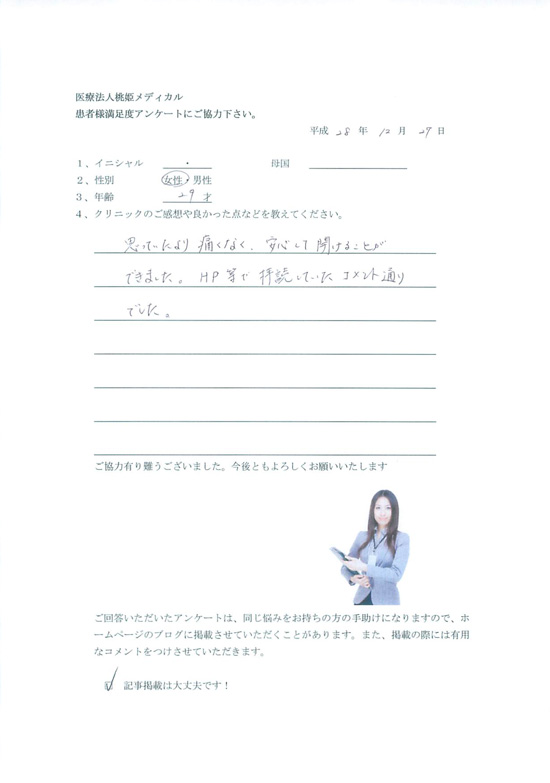 医療法人桃姫メディカル
患者様満足度アンケートにご協力下さい。
平成 28 年 12 月 27 日
1、イニシャル ・ 母国
2、性別 女性・男性
3、年齢 29 才
4、クリニックのご感想や良かった点などを教えてください。
思っていたより 痛くなく、安心して 開けることが
できました。 HP 等で 拝読していた コメント通り
でした。
ご協力有り難うございました。今後ともよろしくお願いいたします
ご回答いただいたアンケートは、同じ悩みをお持ちの方の手助けになりますので、ホ
ームページのブログに掲載させていただくことがあります。また、掲載の際には有用
なコメントをつけさせていただきます。
記事掲載は大丈夫です！